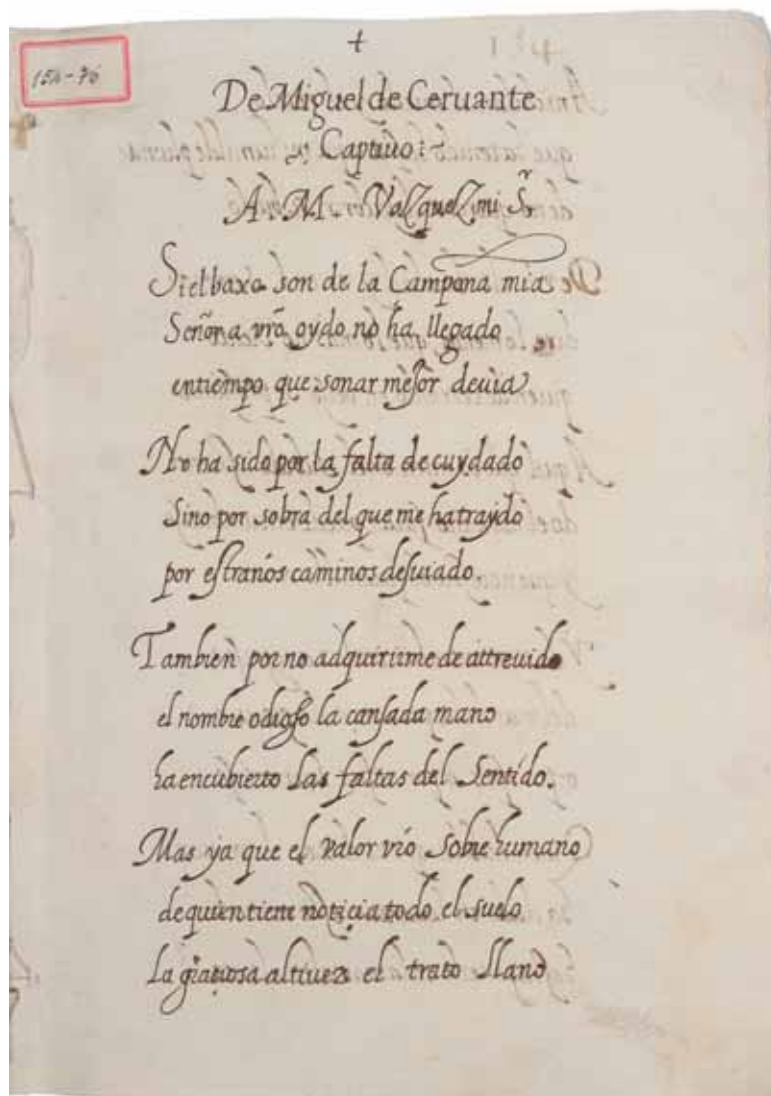 154-76
+
De Miguel de Ceruante
Captiuo:~
A. M. Vazquez, mi S.r
Si el baxo son de la Campona mia
Señor a vrō oydo no ha llegado
en tiempo que sonar mejor deuia
No ha sido por la falta de cuydado
Sino por sobra del que me ha traydo
por estraños caminos desuiado.
Tambien por no adquirirme de attreuido
el nombre odioso la cansada mano
ha encubierto las faltas del Sentido.
Mas ya que el valor vrō Sobre humano
de quien tiene noticia todo el suelo
La graciosa altiuez el trato llano